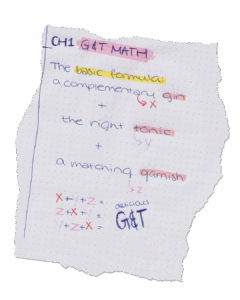 CH1 G&T MATH
The basic formula
a complementary gin
↳ X
+
the right tonic
↳ Y
+
a matching garnish
↳ Z
X+Y+Z =
Z+X+Y =
Y+Z+X =
delicious
G&T